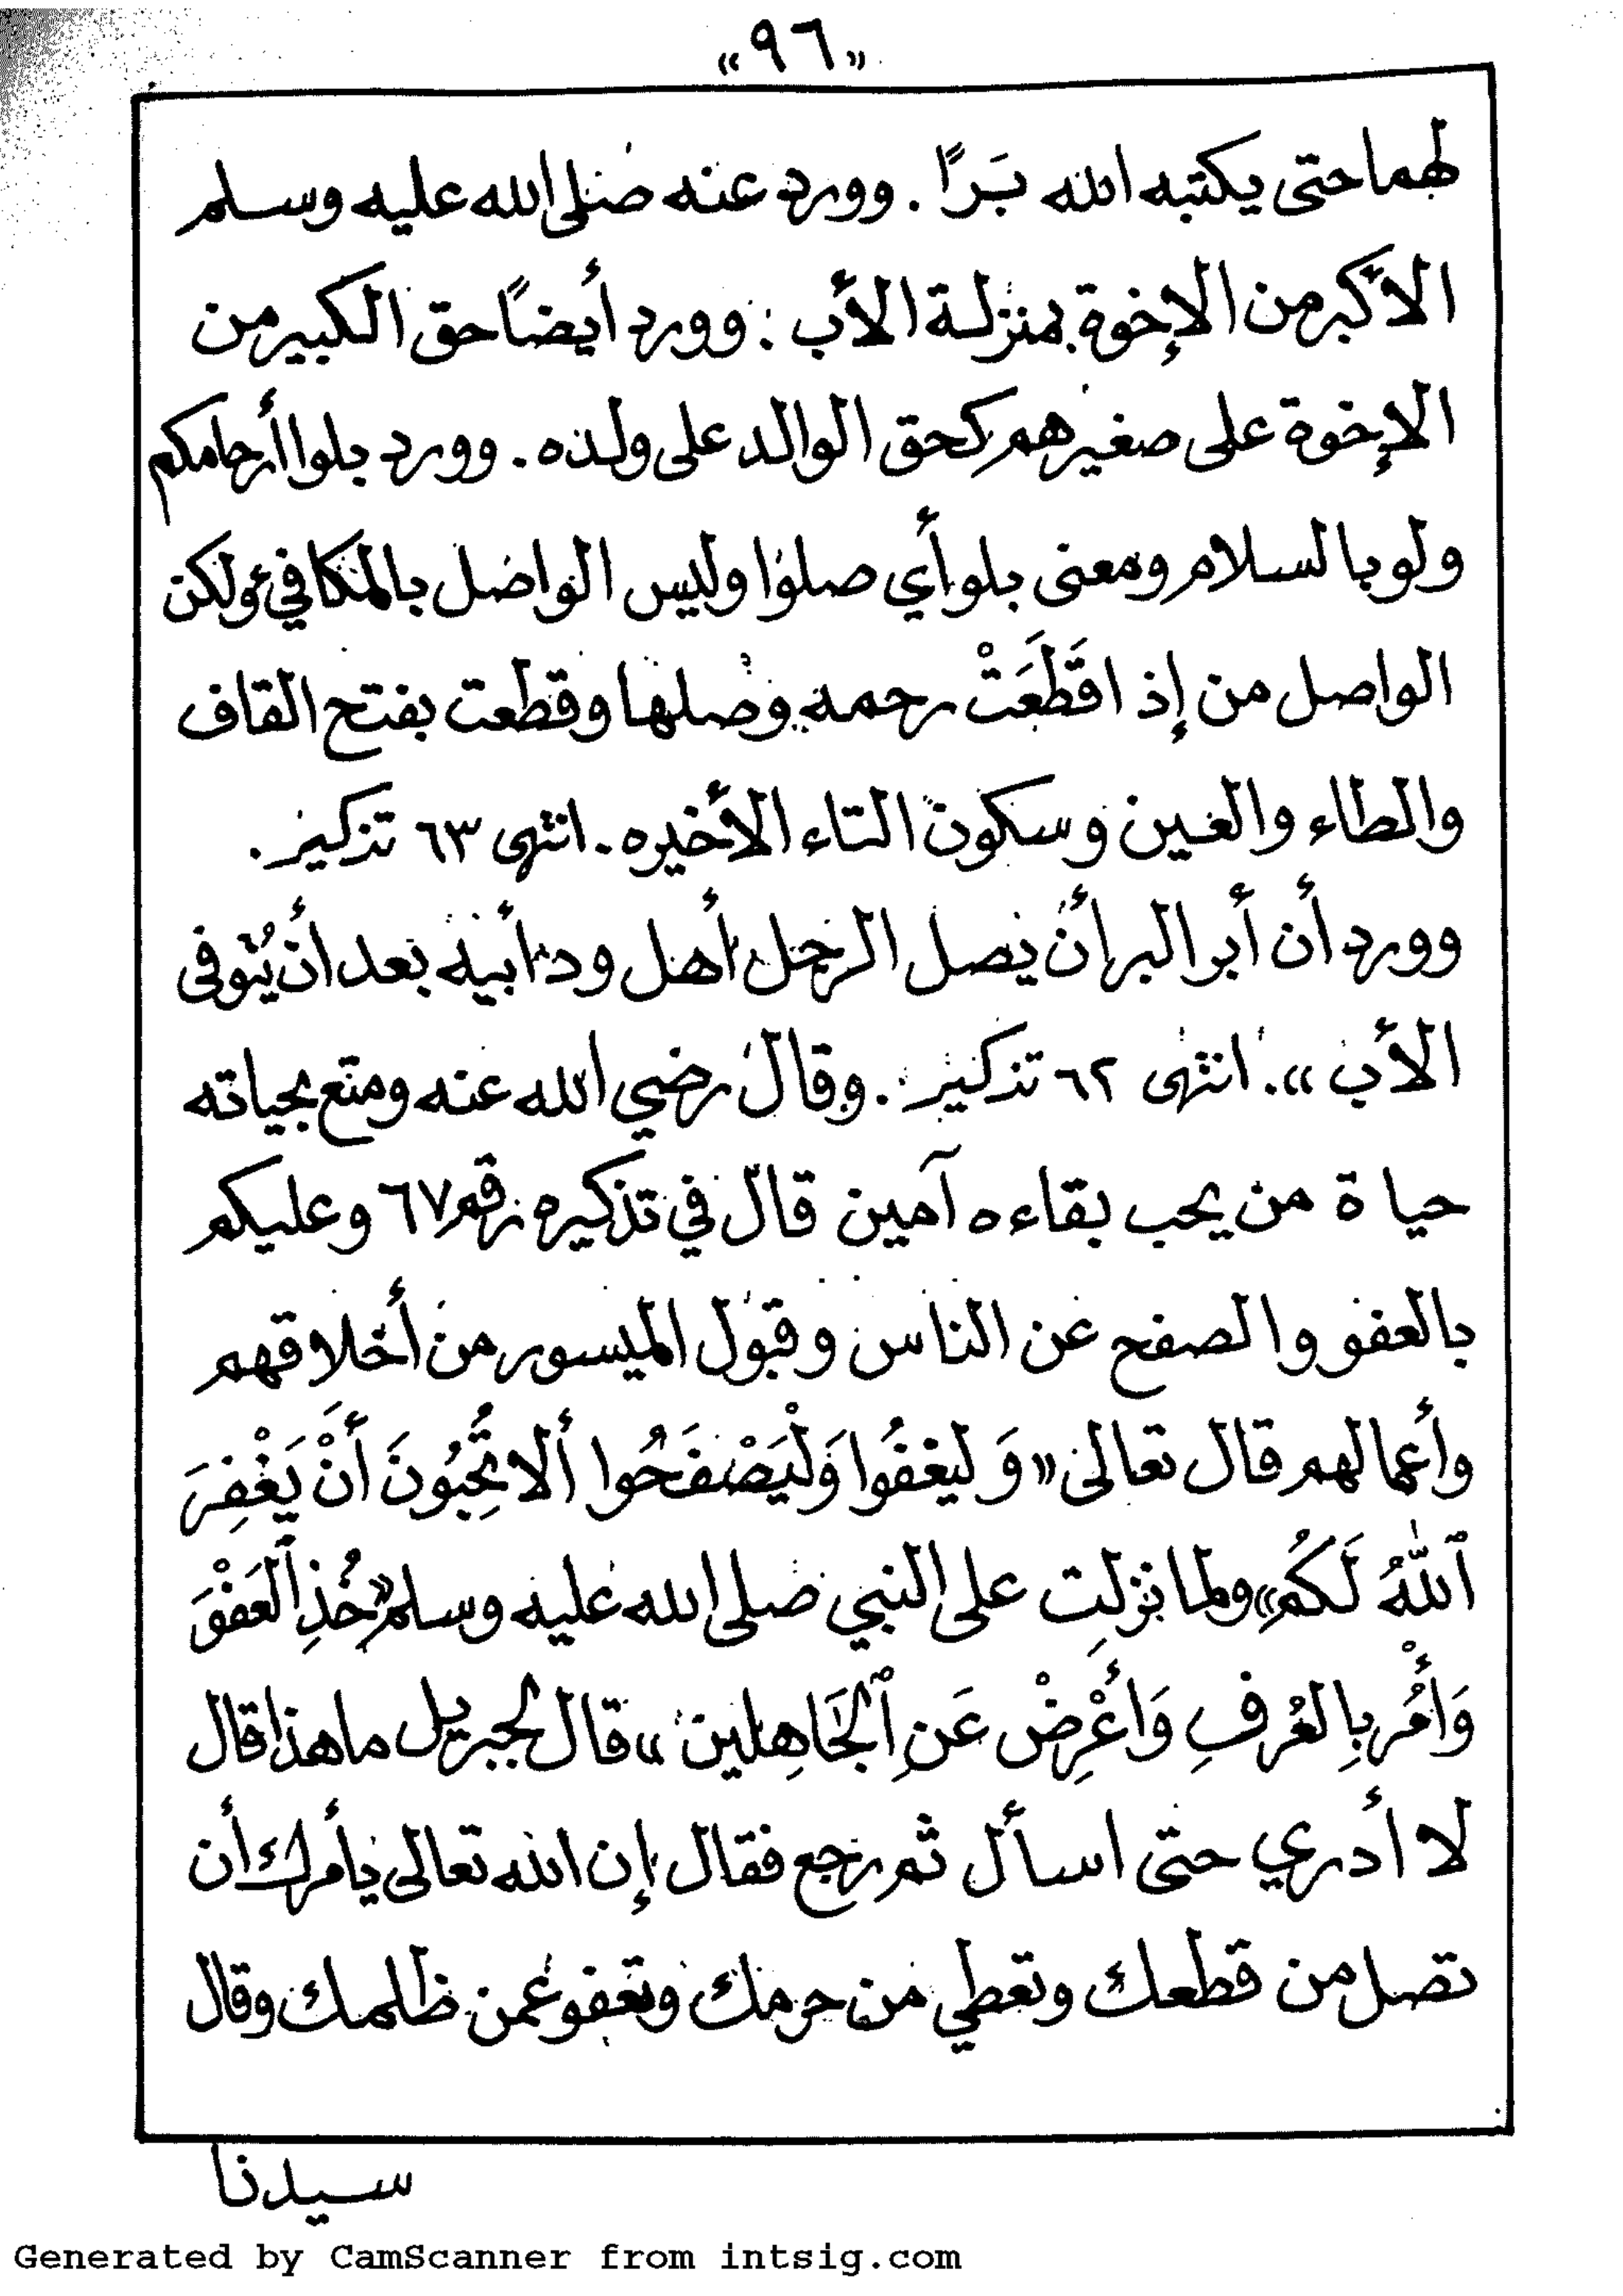 «٩٦»
لهما حتى يكتبه الله بَرًا . وورد عنه صلى الله عليه وسلم
الأكبر من الإخوة بمنزلة الأب . وورد أيضًا حق الكبير من
الإخوة على صغيرهم كحق الوالد على ولده . وورد بلوا أرحامكم
ولو بالسلام ومعنى بلو أي صلوا وليس الواصل بالمكافئ ولكن
الواصل من إذا قَطَعَتْ رحمه وصلها وقطعت بفتح القاف
والطاء والعين وسكون التاء الأخيره . انتهى ٦٣ تذكير .
وورد أن أبر البر أن يصل الرجل أهل ود أبيه بعد أن يُتوفى
الأب » . انتهى ٦٢ تذكير . وقال رضي الله عنه ومتع بحياته
حياة من يحب بقاءه آمين قال في تذكيره رقم ٦٧ وعليكم
بالعفو والصفح عن الناس وقبول الميسور من أخلاقهم
وأعمالهم قال تعالى «وَليعْفُوا وَلْيَصْفَحُوا ألا تُحِبُّونَ أَنْ يَغْفِرَ
ٱللَّهُ لَكُم» ولما نزلت على النبي صلى الله عليه وسلم «خُذِ ٱلعَفْوَ
وَأْمُر بِالعُرفِ وَأَعْرِضْ عَنِ ٱلْجَاهِلين » قال لجبريل ما هذا قال
لا أدري حتى اسأل ثم رجع فقال إن الله تعالى يأمرك أن
تصل من قطعك وتعطي من حرمك وتعفو عمن ظلمك وقال
سيدنا
Generated by CamScanner from intsig.com